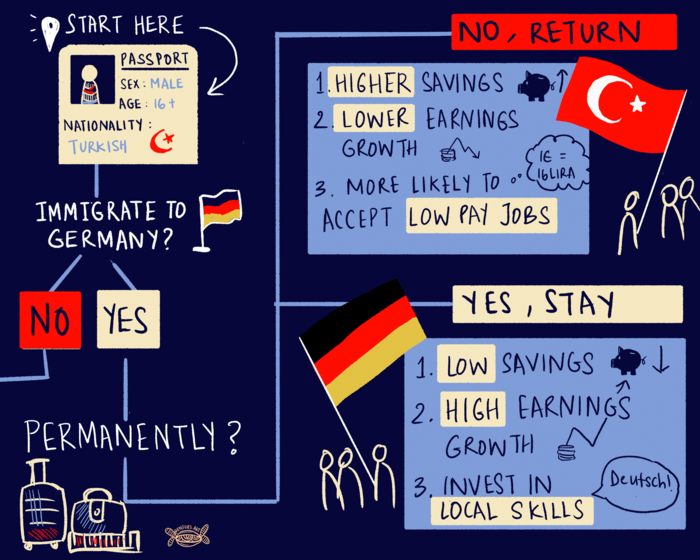 START HERE
PASSPORT
SEX: MALE
AGE: 16+
NATIONALITY:
TURKISH
IMMIGRATE TO
GERMANY?
NO
YES
PERMANENTLY?
NO, RETURN
1. HIGHER SAVINGS
2. LOWER EARNINGS
GROWTH
3. MORE LIKELY TO
ACCEPT LOW PAY JOBS
1€ =
16LIRA
YES, STAY
1. LOW SAVINGS
2. HIGH EARNINGS
GROWTH
3. INVEST IN
LOCAL SKILLS
Deutsch!